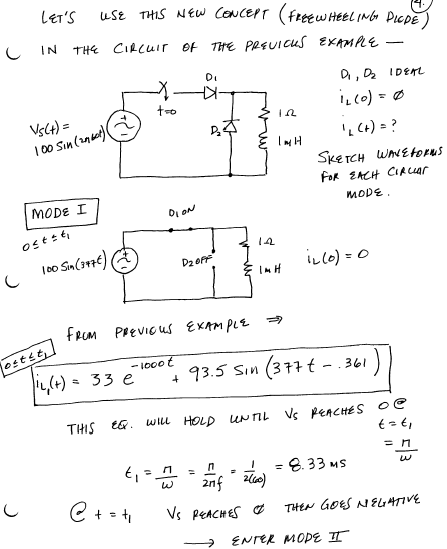 4.
LET'S USE THIS NEW CONCEPT (FREEWHEELING DIODE)
IN THE CIRCUIT OF THE PREVIOUS EXAMPLE —
D1
D1, D2 IDEAL
t=0
iL(0) = ∅
Vs(t) =
100 Sin(2π60t)
D2
1Ω
1mH
iL(t) = ?
SKETCH WAVEFORMS
FOR EACH CIRCUIT
MODE.
MODE I
0≤t≤t1
D1 ON
100 Sin(377t)
D2 OFF
1Ω
1mH
iL(0) = 0
FROM PREVIOUS EXAMPLE ⇒
0≤t≤t1
iL1(t) = 33 e^-1000t + 93.5 Sin (377t - .361)
THIS EQ. WILL HOLD UNTIL Vs REACHES 0 @
t = t1
= π/ω
t1 = π/ω = π/2πf = 1/2(60) = 8.33 ms
@ t = t1 Vs REACHES ∅ THEN GOES NEGATIVE
→ ENTER MODE II